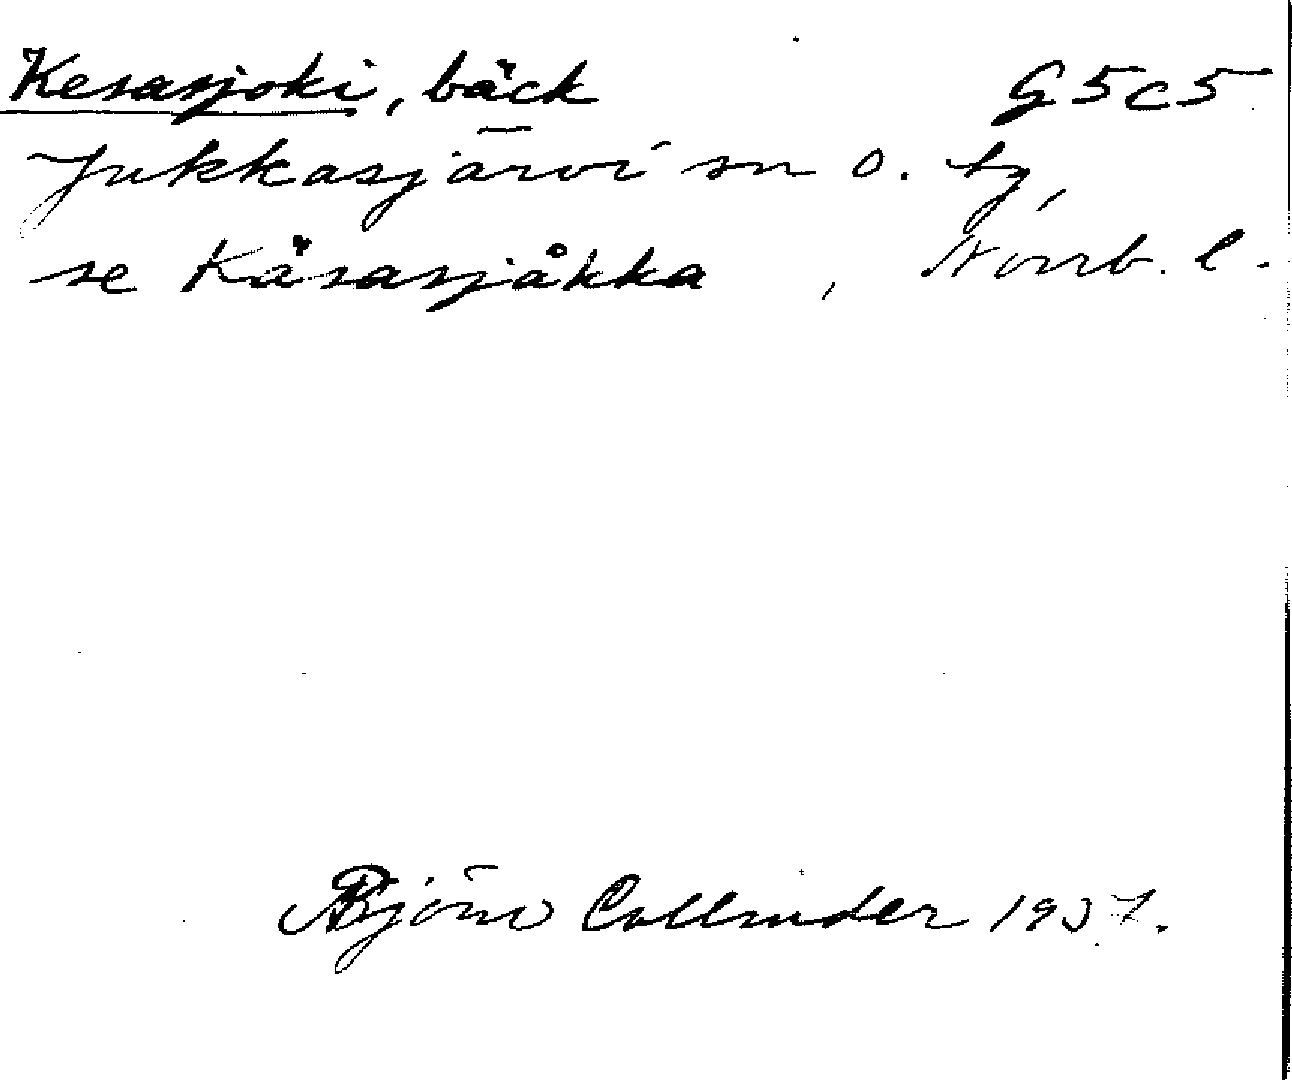 Kesasjoki, bäck G5c5
Jukkasjärvi sn o. tg,
se Käsasjåkka, Norrb. l.
Björn Collinder 1937.